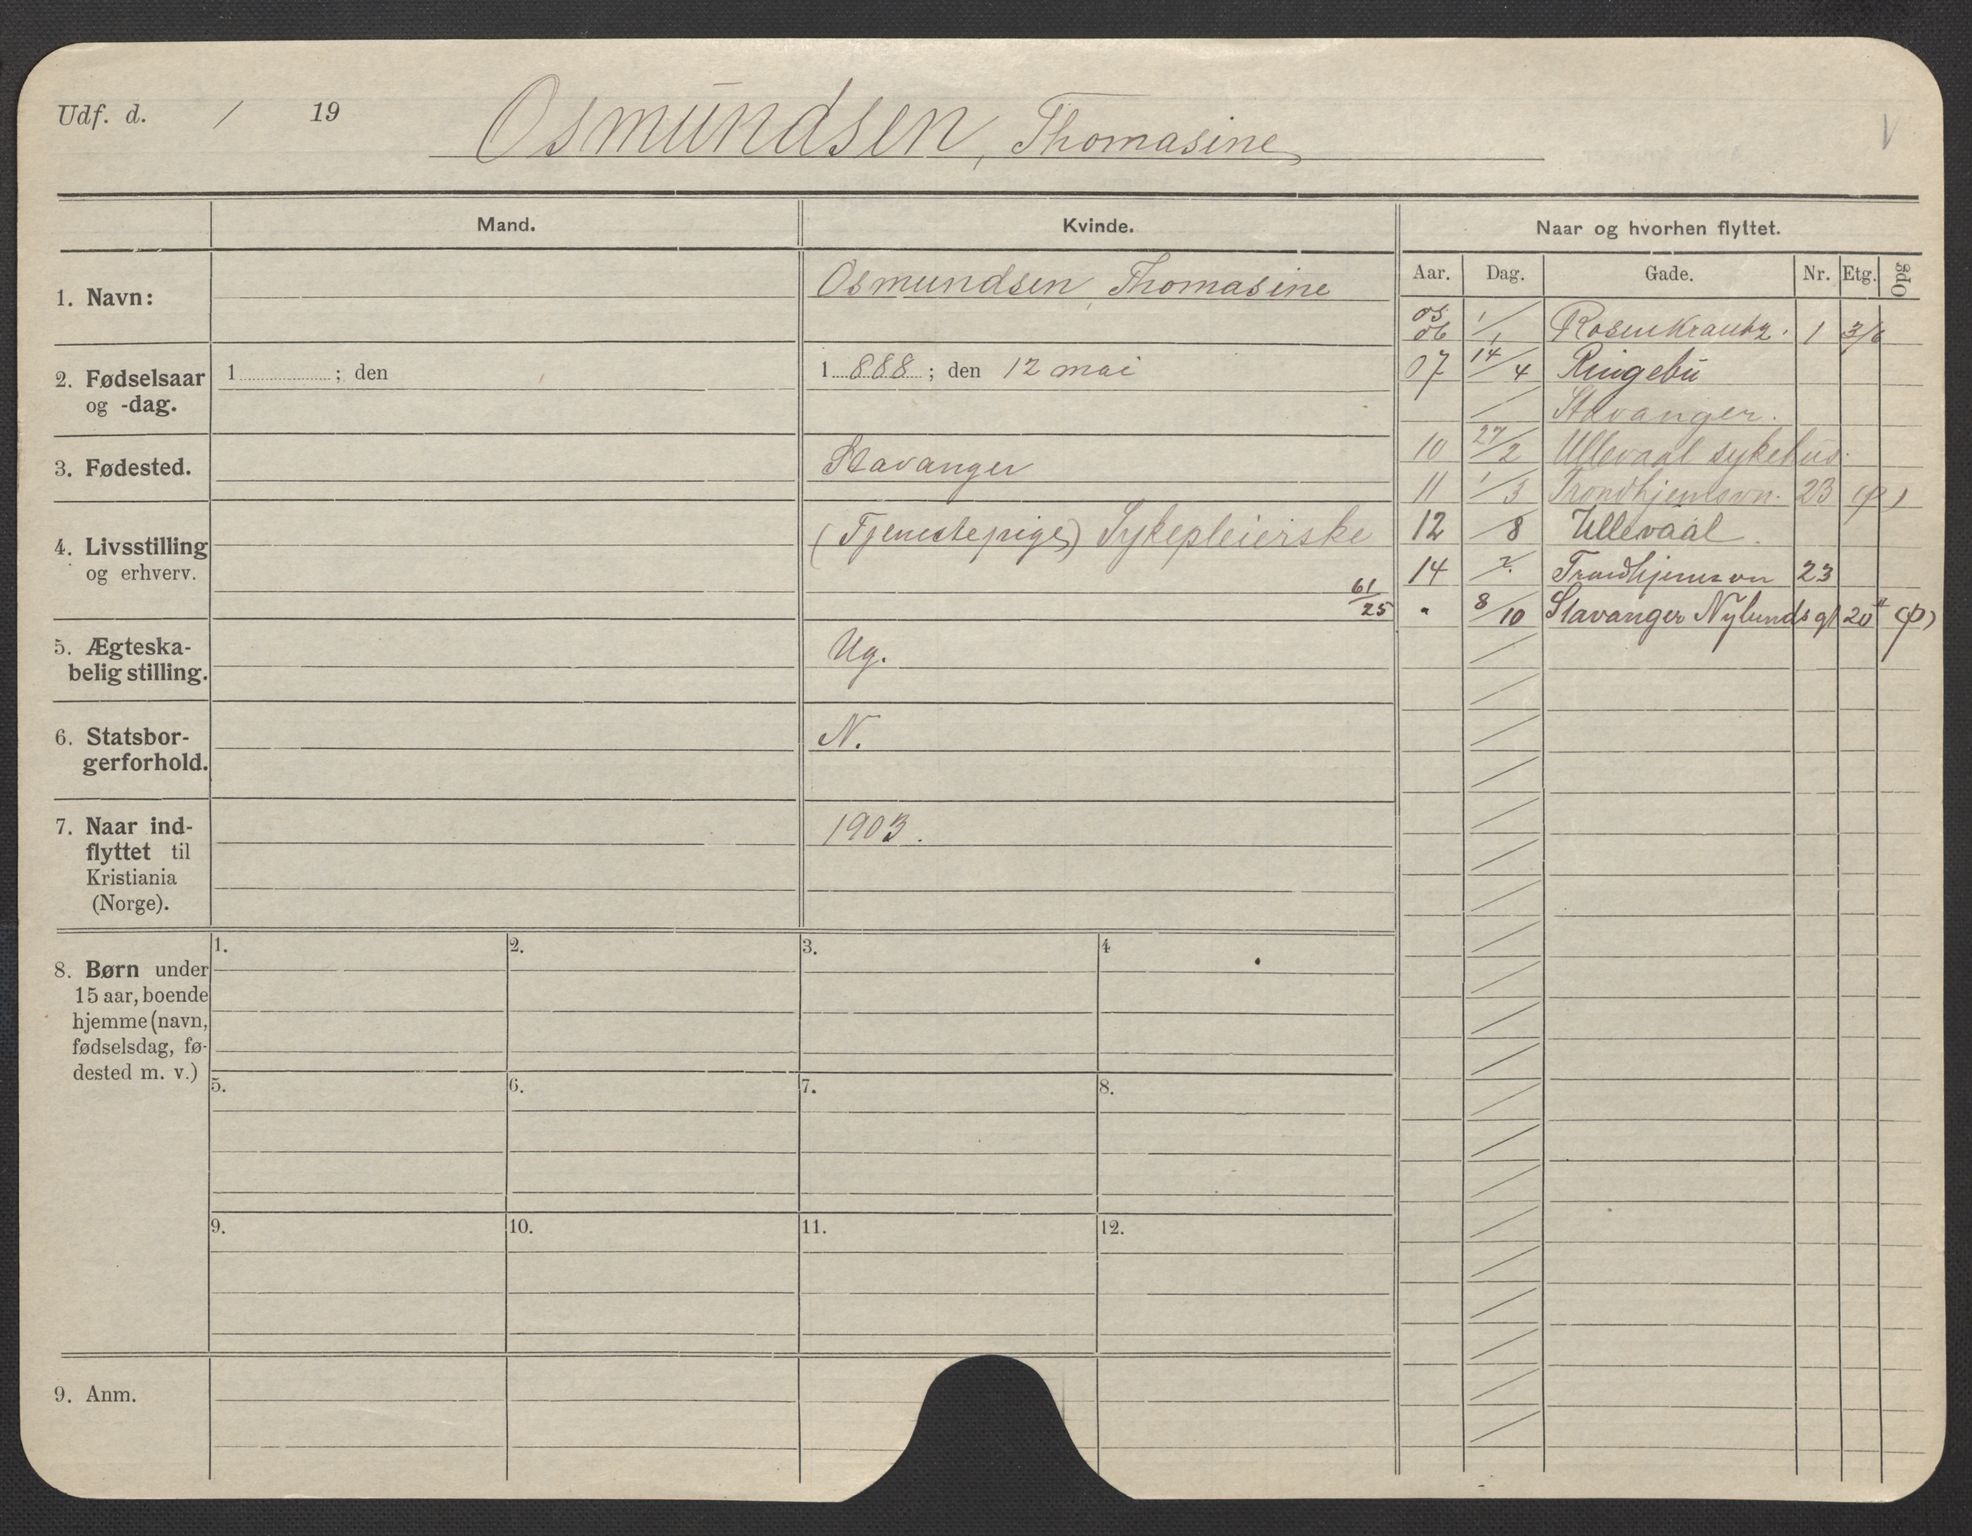 Udf. d. / 19
Osmundsen, Thomasine
Mand.
Kvinde.
Naar og hvorhen flyttet.
Aar. Dag. Gade. Nr. Etg. Opg
1. Navn:
Osmundsen, Thomasine
2. Fødselsaar og -dag.
1 ; den
1 888 ; den 12 mai
3. Fødested.
Stavanger
4. Livsstilling og erhverv.
(Tjenestepige) Sykepleierske
61/25
5. Ægteska-
belig stilling.
Ug.
6. Statsbor-
gerforhold.
N.
7. Naar ind-
flyttet til
Kristiania
(Norge).
1903.
05
06 1/1 Rosenkrantz. 1 3/6
07 14/4 Ringebu
/ Stavanger.
10 27/2 Ullevaal sykehus.
11 1/3 Trondhjemsvn. 23 (p)
12 /8 Ullevaal.
14 Trondhjemsvn 23
" 8/10 Stavanger Nylundsgt 20 (p)
8. Børn under
15 aar, boende
hjemme (navn,
fødselsdag, fø-
dested m. v.)
1. 2. 3. 4
5. 6. 7. 8.
9. 10. 11. 12.
9. Anm.